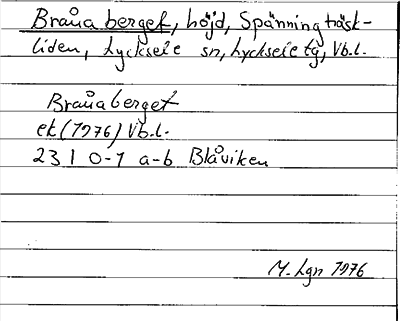 Braûaberget, höjd, Spänningträsk-
liden, Lycksele sn, Lycksele tg, Vb.l.
Braûaberget
ek (1976) Vb.l.
23 I 0-1 a-b Blåviken
M. Lgn 1976